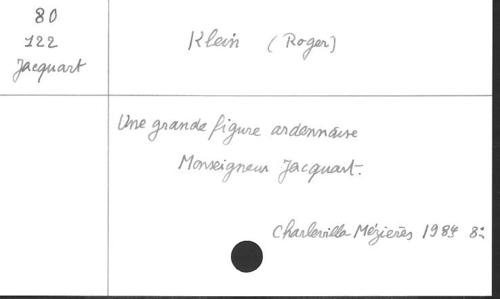 80
122
Jacquart
Klein (Roger)
Une grande figure ardennaise
Monseigneur Jacquart.
Charleville Mézières 1984 8°